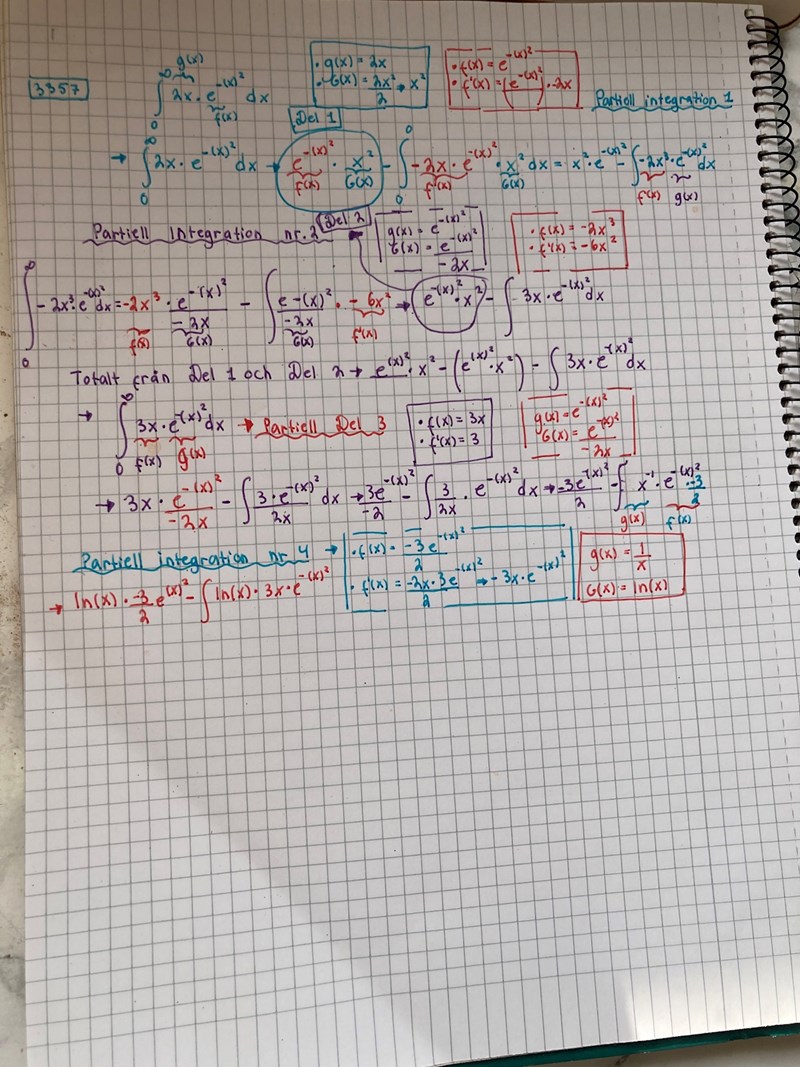 3357
g(x)
∫₀^∞ 2x · e^-(x)² dx
f(x)
· g(x) = 2x
· G(x) = 2x²/2 → x²
· f(x) = e^-(x)²
· f'(x) = (e^-(x)²) · -2x
Partiell integration 1
Del 1
→ ∫₀^∞ 2x · e^-(x)² dx → e^-(x)² · x² - ∫₀^0 -2x · e^-(x)² · x² dx = x² · e^-(x)² - ∫ -2x³ · e^-(x)² dx
f(x) G(x) f'(x) G(x) f(x) g(x)
Partiell Integration nr. 2
Del 2
g(x) = e^-(x)²
G(x) = e^-(x)²/-2x
· f(x) = -2x³
· f'(x) = -6x²
∫₀^∞ -2x³ · e^-(x)² dx = -2x³ · e^-(x)²/-2x - ∫ e^-(x)²/-2x · -6x² → e^-(x)² · x² - ∫ 3x · e^-(x)² dx
f(x) G(x) G(x) f'(x)
Totalt från Del 1 och Del 2 → e^(x)² · x² - (e^(x)² · x²) - ∫ 3x · e^-(x)² dx
→ ∫₀^∞ 3x · e^-(x)² dx → Partiell Del 3
f(x) g(x)
· f(x) = 3x
· f'(x) = 3
g(x) = e^-(x)²
G(x) = e^-(x)²/-2x
→ 3x · e^-(x)²/-2x - ∫ 3 · e^-(x)²/2x dx → 3e^-(x)²/-2 - ∫ 3/2x · e^-(x)² dx → -3e^-(x)²/2 - ∫ x⁻¹ · e^-(x)² · -3/2
g(x) f(x)
Partiell integration nr 4 →
· f(x) = -3e^-(x)²/2
· f'(x) = -2x · 3e^-(x)²/2 → -3x · e^-(x)²
g(x) = 1/x
G(x) = ln(x)
→ ln(x) · -3/2 e^(x)² - ∫ ln(x) · 3x · e^-(x)²